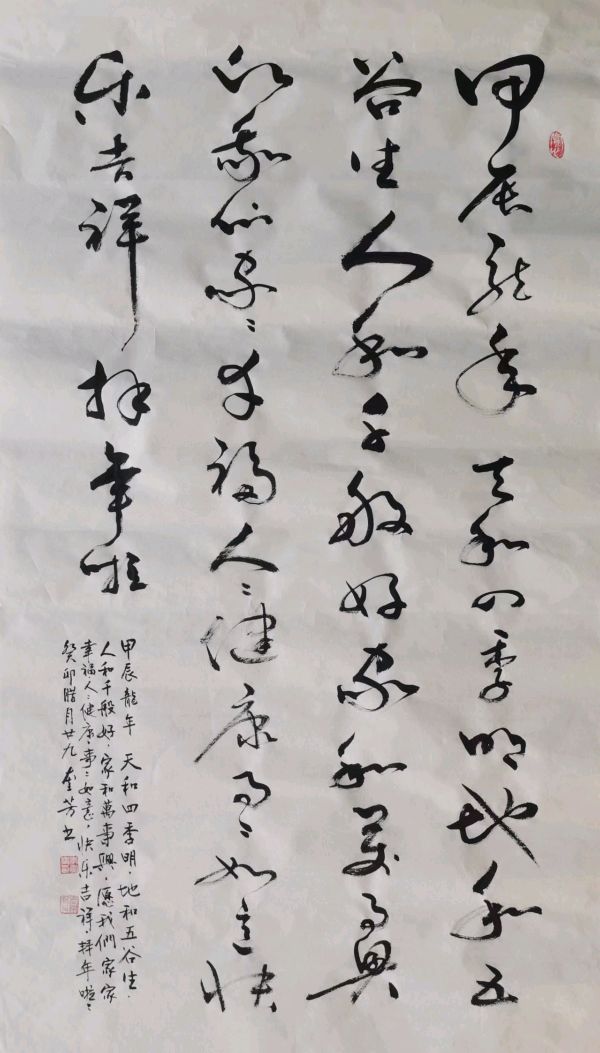 甲辰龍年 天和四季明地和五
谷生人和千般好家和萬事興
愿我们家〻幸福人〻健康事〻如意快
乐吉祥 拜年啦
甲辰龍年 天和四季明，地和五谷生，
人和千般好，家和萬事興，愿我們家家
幸福人〻健康，事〻如意，快乐吉祥，拜年啦〻
癸卯腊月廿九 奎芳书